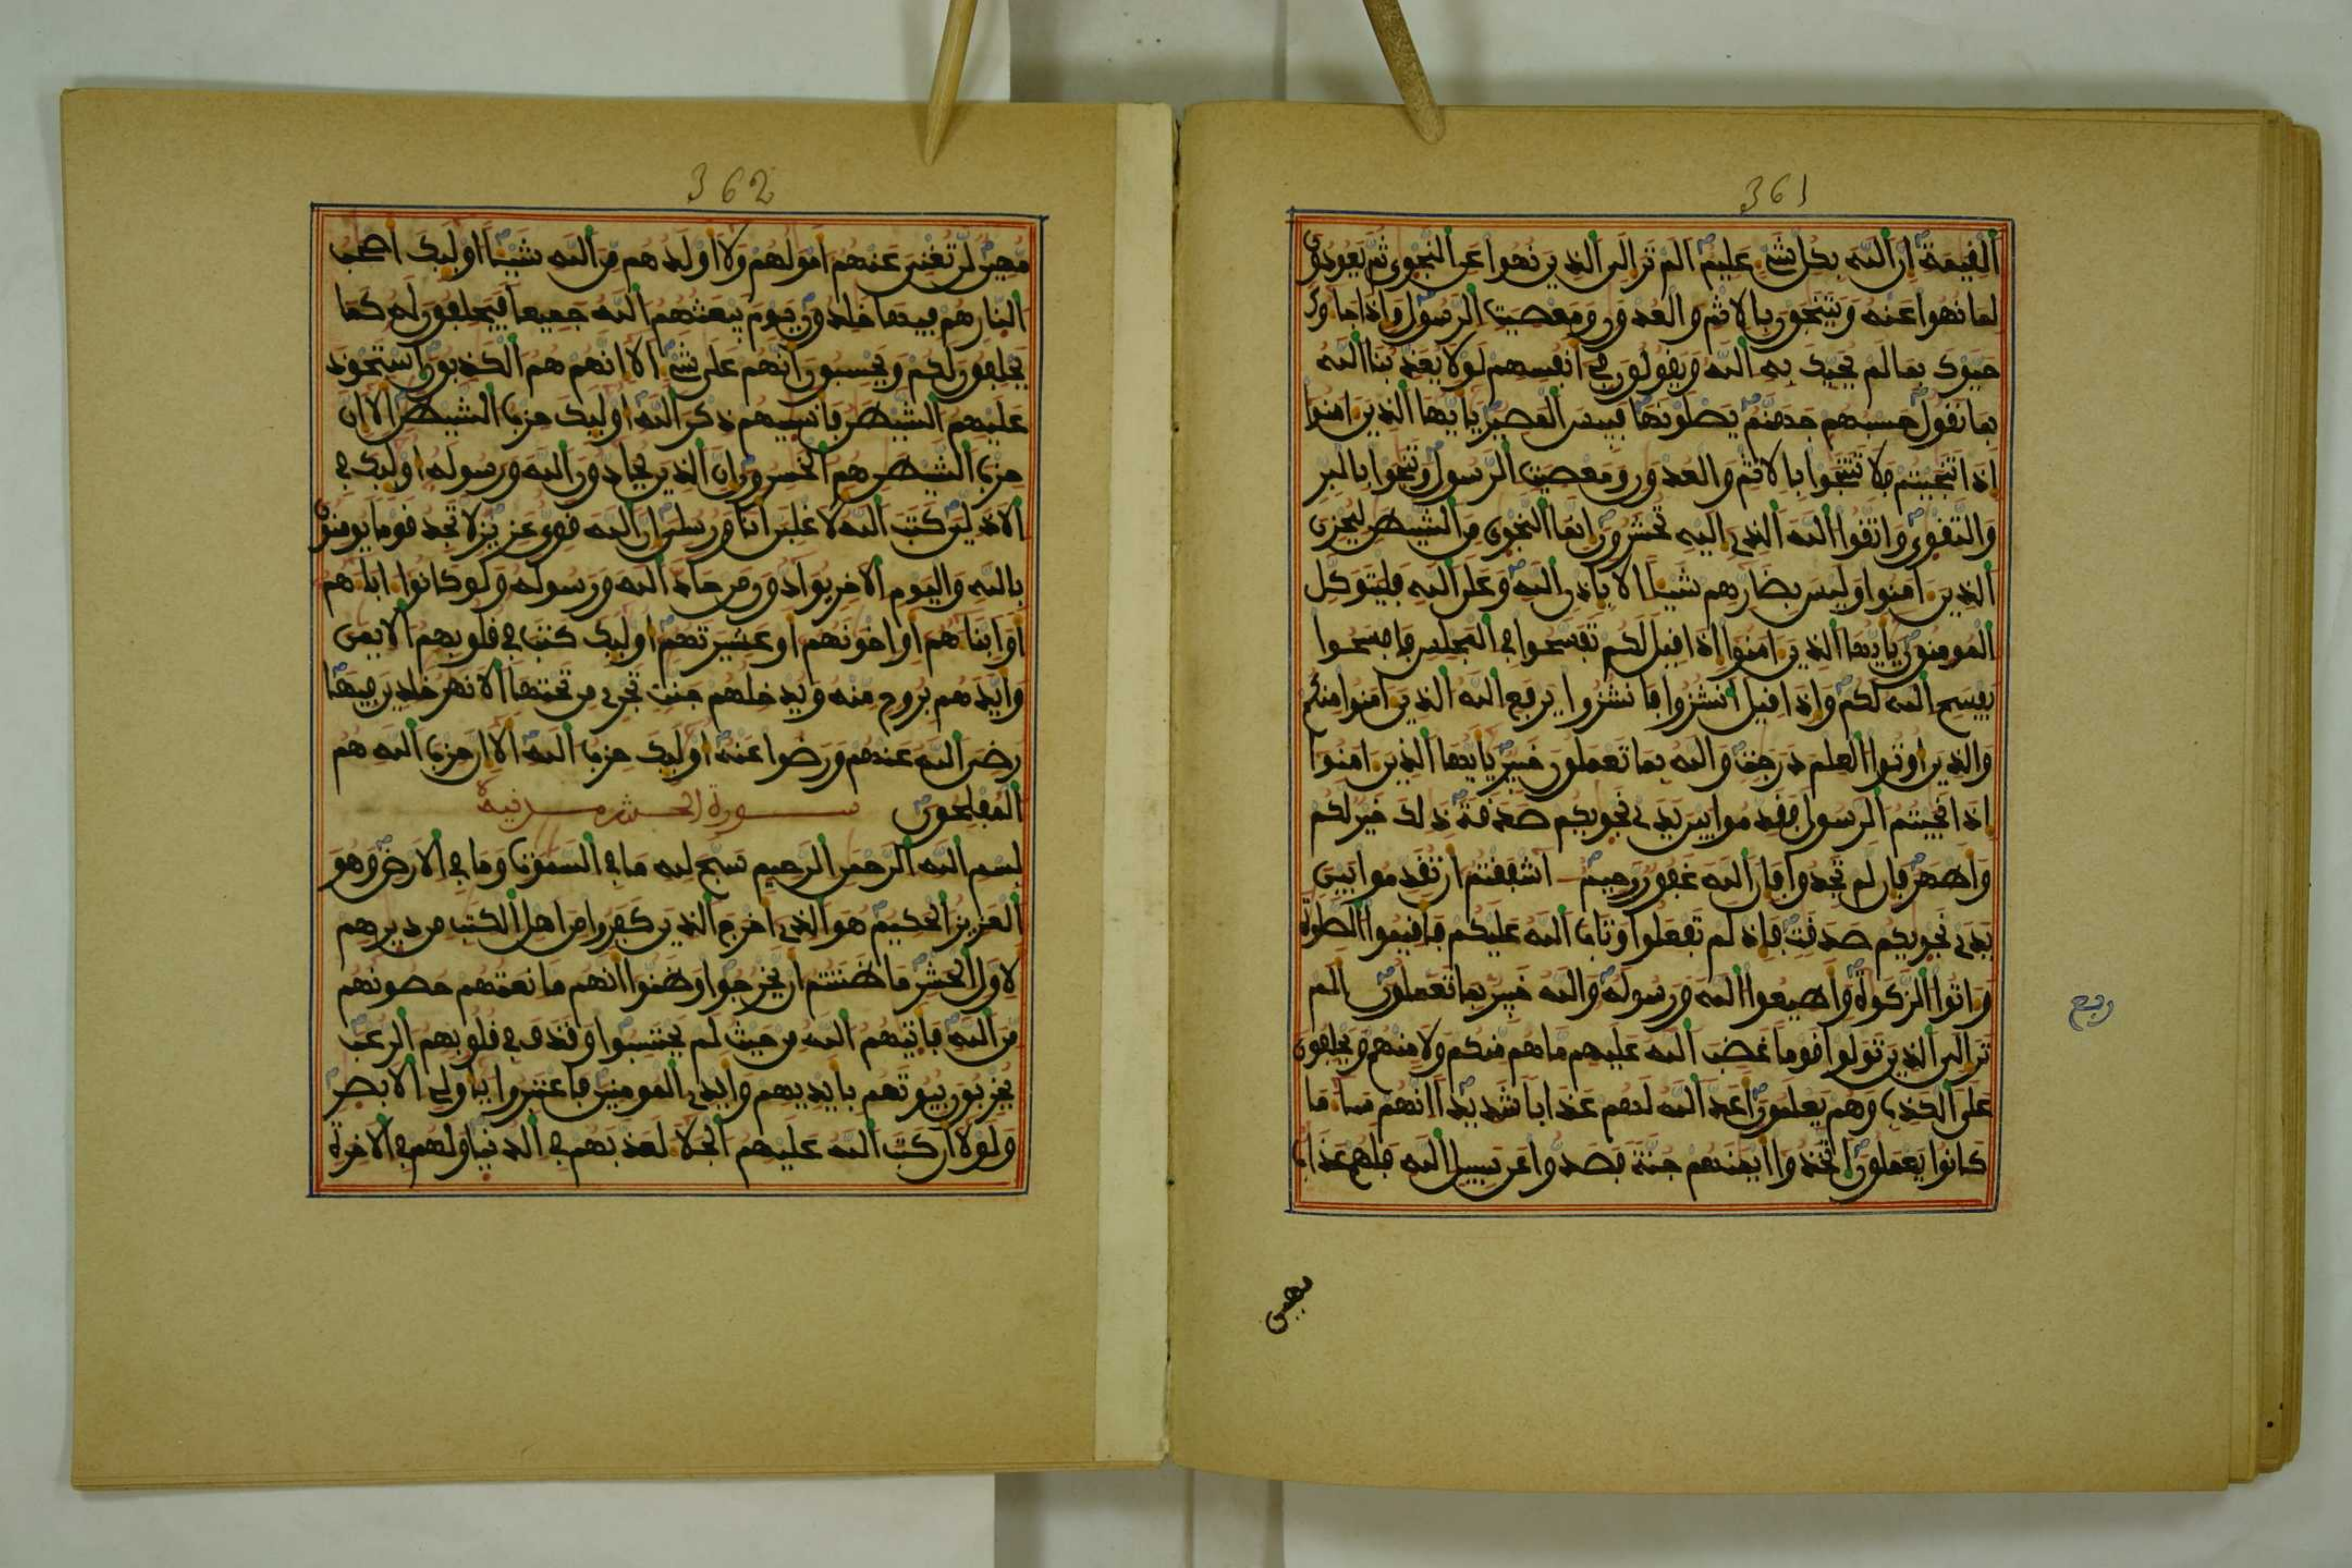 361
القيمة ان الله بكل شيء عليم الم تر الى الذين نهوا عن النجوى ثم يعودون
لما نهوا عنه ويتنجون بالاثم والعدون ومعصيت الرسول واذا جاوك
حيوك بما لم يحيك به الله ويقولون في انفسهم لولا يعذبنا الله
بما نقول حسبهم جهنم يصلونها فبيس المصير يايها الذين امنوا
اذا تنجيتم فلا تتنجوا بالاثم والعدون ومعصيت الرسول وتنجوا بالبر
والتقوى واتقوا الله الذي اليه تحشرون انما النجوى من الشيطن ليحزن
الذين امنوا وليس بضارهم شيا الا باذن الله وعلى الله فليتوكل
المومنون يايها الذين امنوا اذا قيل لكم تفسحوا في المجلس فافسحوا
يفسح الله لكم واذا قيل انشزوا فانشزوا يرفع الله الذين امنوا منكم
والذين اوتوا العلم درجت والله بما تعملون خبير يايها الذين امنوا
اذا نجيتم الرسول فقدموا بين يدي نجويكم صدقة ذلك خير لكم
واطهر فان لم تجدوا فان الله غفور رحيم اشفقتم ان تقدموا بين
يدي نجويكم صدقت فاذ لم تفعلوا وتاب الله عليكم فاقيموا الصلوة
واتوا الزكوة واطيعوا الله ورسوله والله خبير بما تعملون الم
تر الى الذين تولوا قوما غضب الله عليهم ما هم منكم ولا منهم ويحلفون
على الكذب وهم يعلمون اعد الله لهم عذابا شديدا انهم سا ما
كانوا يعملون اتخذوا ايمنهم جنة فصدوا عن سبيل الله فلهم عذاب
ربع
مهين
362
مهين لن تغني عنهم امولهم ولا اولدهم من الله شيا اوليك اصحب
النار هم فيها خلدون يوم يبعثهم الله جميعا فيحلفون له كما
يحلفون لكم ويحسبون انهم على شيء الا انهم هم الكذبون استحوذ
عليهم الشيطن فانسيهم ذكر الله اوليك حزب الشيطن الا ان
حزب الشيطن هم الخسرون ان الذين يحادون الله ورسوله اوليك في
الاذلين كتب الله لاغلبن انا ورسلي ان الله قوي عزيز لا تجد قوما يومنون
بالله واليوم الاخر يوادون من حاد الله ورسوله ولو كانوا اباهم
او ابناهم او اخونهم او عشيرتهم اوليك كتب في قلوبهم الايمن
وايدهم بروح منه ويدخلهم جنت تجري من تحتها الانهر خلدين فيها
رضي الله عنهم ورضوا عنه اوليك حزب الله الا ان حزب الله هم
المفلحون سورة الحشر مدنية
بسم الله الرحمن الرحيم سبح لله ما في السموت وما في الارض وهو
العزيز الحكيم هو الذي اخرج الذين كفروا من اهل الكتب من ديرهم
لاول الحشر ما ظننتم ان يخرجوا وظنوا انهم مانعتهم حصونهم
من الله فاتيهم الله من حيث لم يحتسبوا وقذف في قلوبهم الرعب
يخربون بيوتهم بايديهم وايدي المومنين فاعتبروا ياولي الابصر
ولولا ان كتب الله عليهم الجلا لعذبهم في الدنيا ولهم في الاخرة